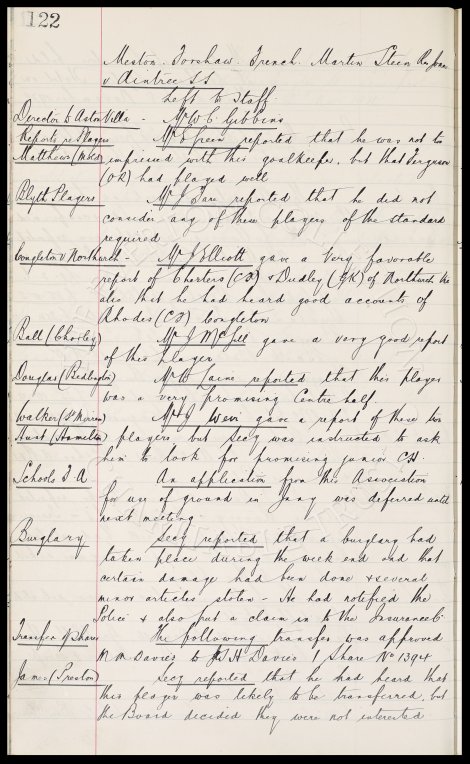 122
Meston. Forshaw. French. Martin Steen
v Aintree S.S
Left to Staff
Director to Aston Villa - Mr W. C. Gibbins
Reports re Players Mr E Green reported that he was not so
Matthews impressed with this goalkeeper, but that Ferguson
(OR) had played well
Blyth Players Mr J Tare reported that he did not
consider any of these players of the standard
required
Congleton v Northwich - Mr J Elliott gave a very favorable
report of Charters (CF) & Dudley (GK) of Northwich Vic
also that he had heard good accounts of
Rhodes (CF) Congleton
Ball (Chorley) Mr J McGill gave a very good report
of this player
Douglas (Bedlington) Mr W Laine reported that this player
was a very promising Centre half
Walker (St Mirren) Mr J Weir gave a report of these two
Hunt (Hamilton) players but Secy was instructed to ask
him to look for promising junior C.H.
Schools F. A An application from this Association
for use of ground in Jany was deferred until
next meeting
Burglary Secy reported that a burglary had
taken place during the week end and that
certain damage had been done & several
minor articles stolen - He had notified the
Police & also put a claim in to the Insurance Co
Transfer of Shares The following transfer was approved
Davies to H Davies 1 Share No 1394
James (Preston) Secy reported that he had heard that
this player was likely to be transferred, but
the Board decided they were not interested